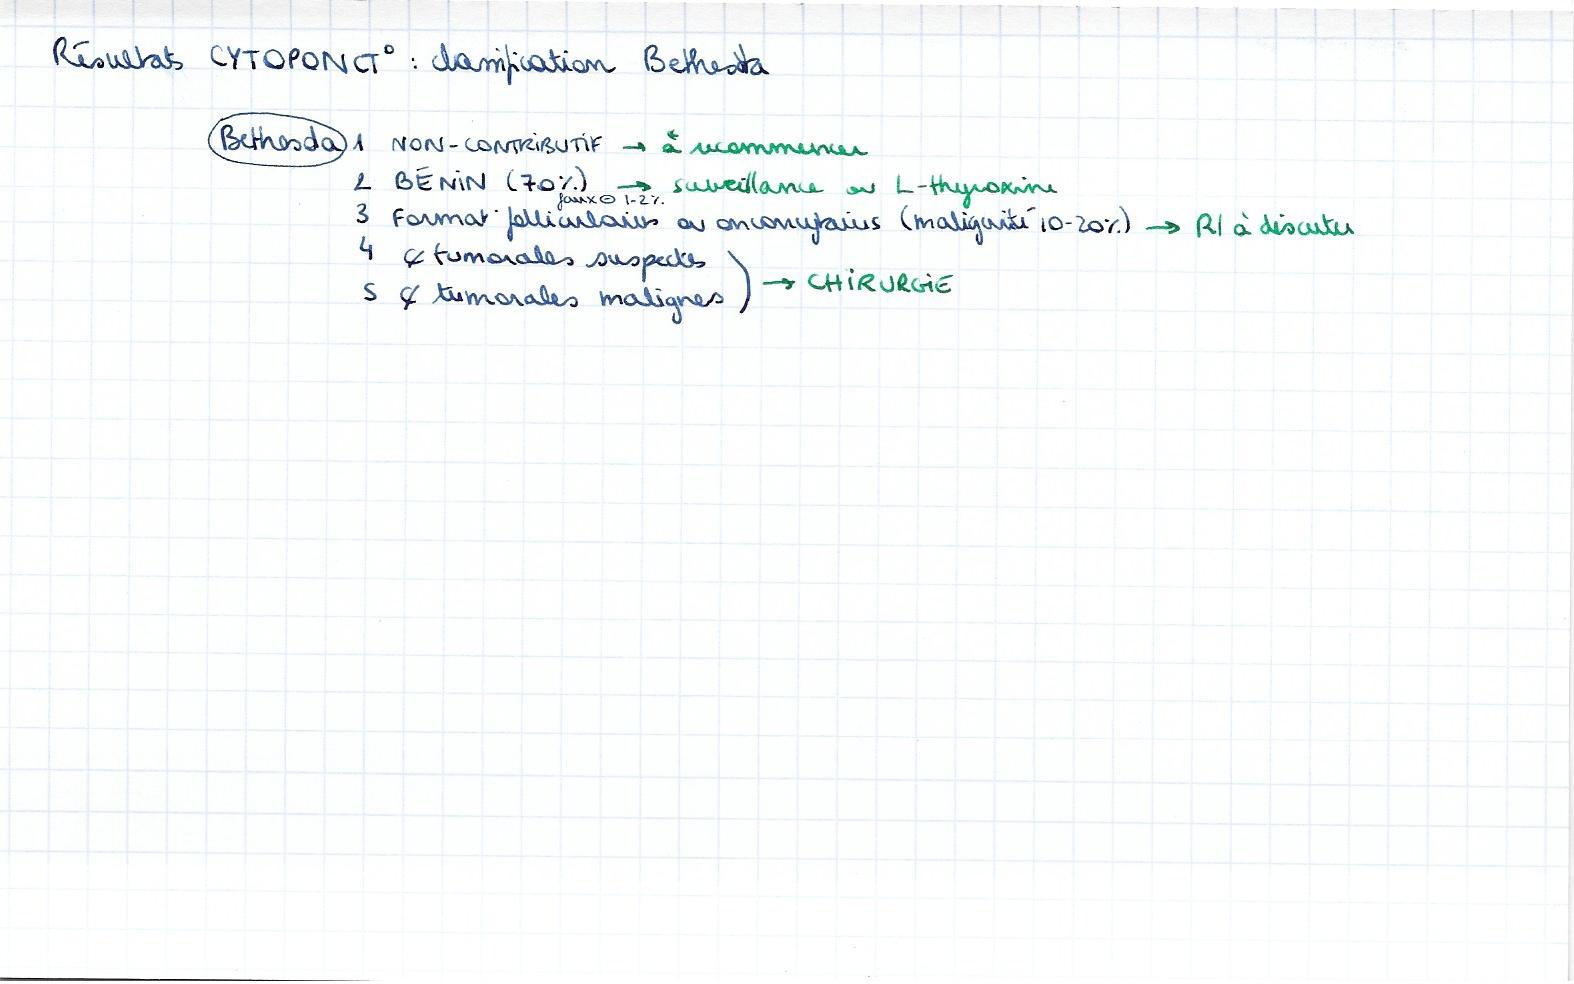 Résultats CYTOPONCT° : classification Bethesda
Bethesda 1 NON-CONTRIBUTIF → à recommencer
2 BÉNIN (70%) → surveillance ou L-thyroxine
faux ⊖ 1-2%
3 Format° folliculaires ou oncocytaires (malignité 10-20%) → RI à discuter
4 ¢ tumorales suspectes
5 ¢ tumorales malignes → CHIRURGIE